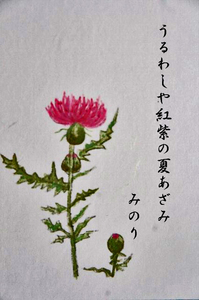 うるわしや紅紫の夏あざみ
みのり